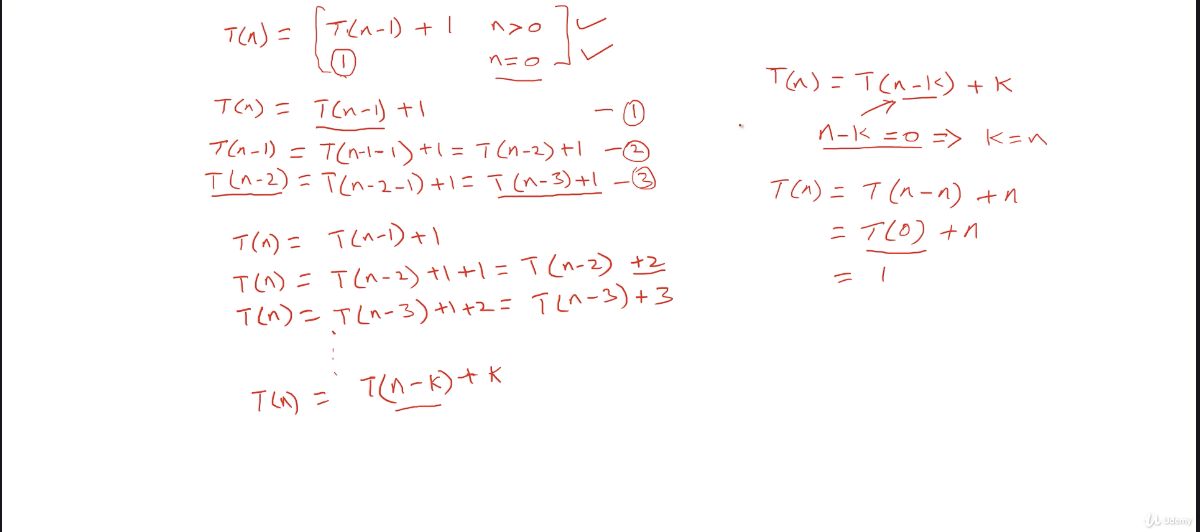 T(n) = T(n-1) + 1 n>0
1 n=0
T(n) = T(n-1) +1 - 1
T(n-1) = T(n-1-1) +1 = T(n-2)+1 - 2
T(n-2) = T(n-2-1) +1 = T(n-3)+1 - 3
T(n) = T(n-1)+1
T(n) = T(n-2) +1 +1 = T(n-2) +2
T(n) = T(n-3) +1 +2 = T(n-3)+3
T(n) = T(n-k) + k
T(n) = T(n-k) + k
n-k = 0 => k=n
T(n) = T(n-n) + n
= T(0) + n
= 1
Udemy